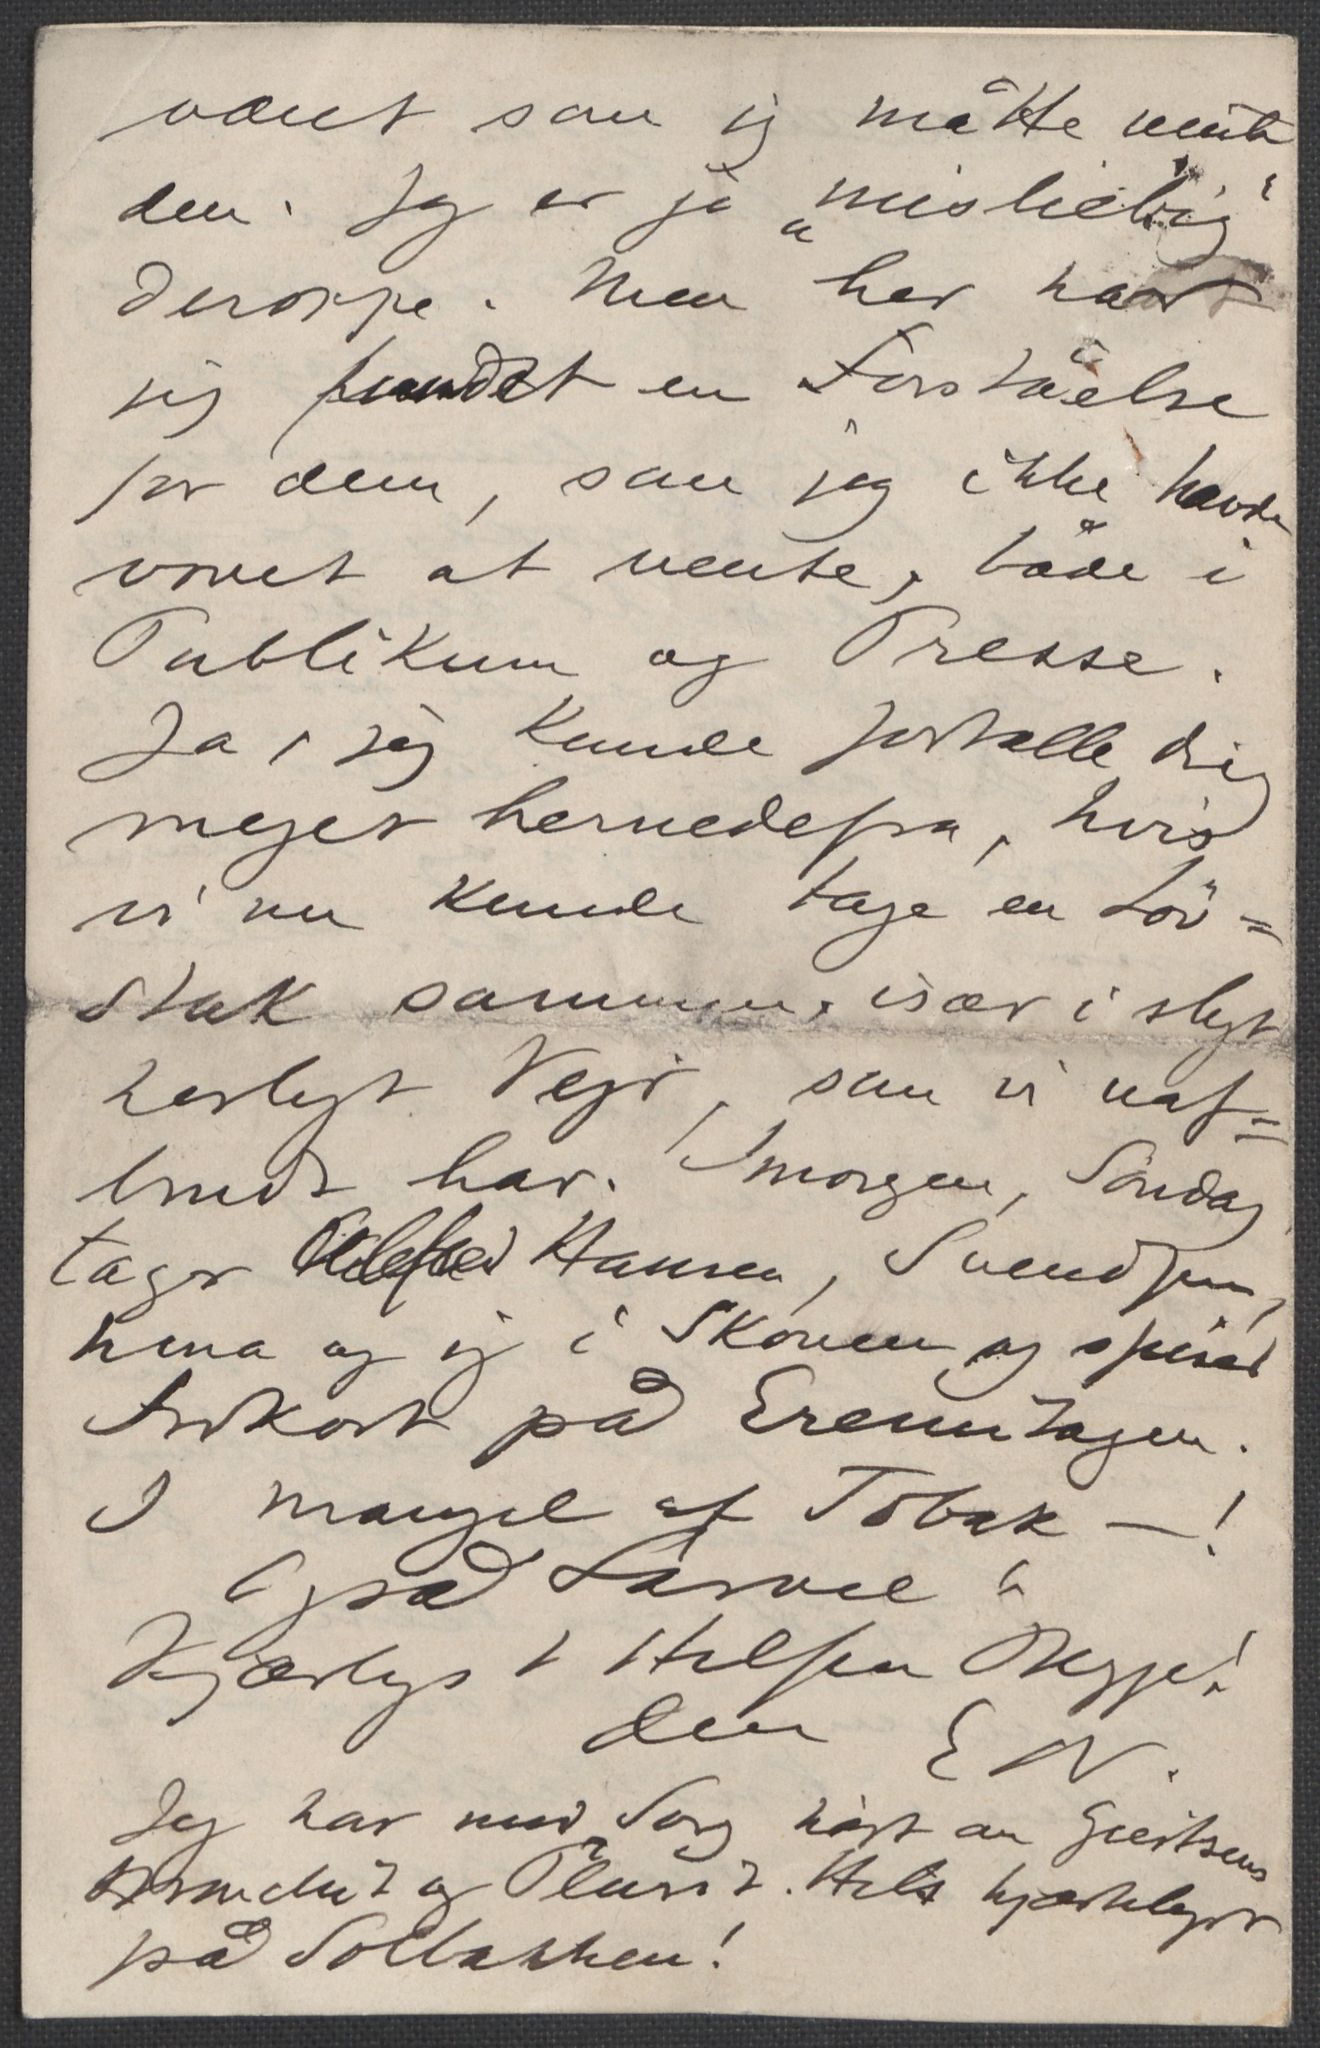 været som jeg måtte vente
den. Jeg er jo „misliebig“
deroppe. Men her har
jeg fundet en Forståelse
for dem, som jeg ikke havde
vovet at vente, både i
Publikum og Presse.
Ja, jeg kunde fortælle dig
meget hernedefra, hvis
vi nu kunde tage en Löv=
stak sammen, især i sligt
herligt Vejr, som vi uaf=
brudt har. Imorgen, Söndag
tager Hansen, Svendsen,
Nina og jeg i Skoven og spiser
Frokost på Eremitagen.
I mangel af Tobak – !
Og så Farvel
Kjærligst Hilsen Begge!
din E N.
Jeg har med Sorg hört om Geertsens
Bronchit og Pleurit. Hils hjerteligst
på Solbakken!